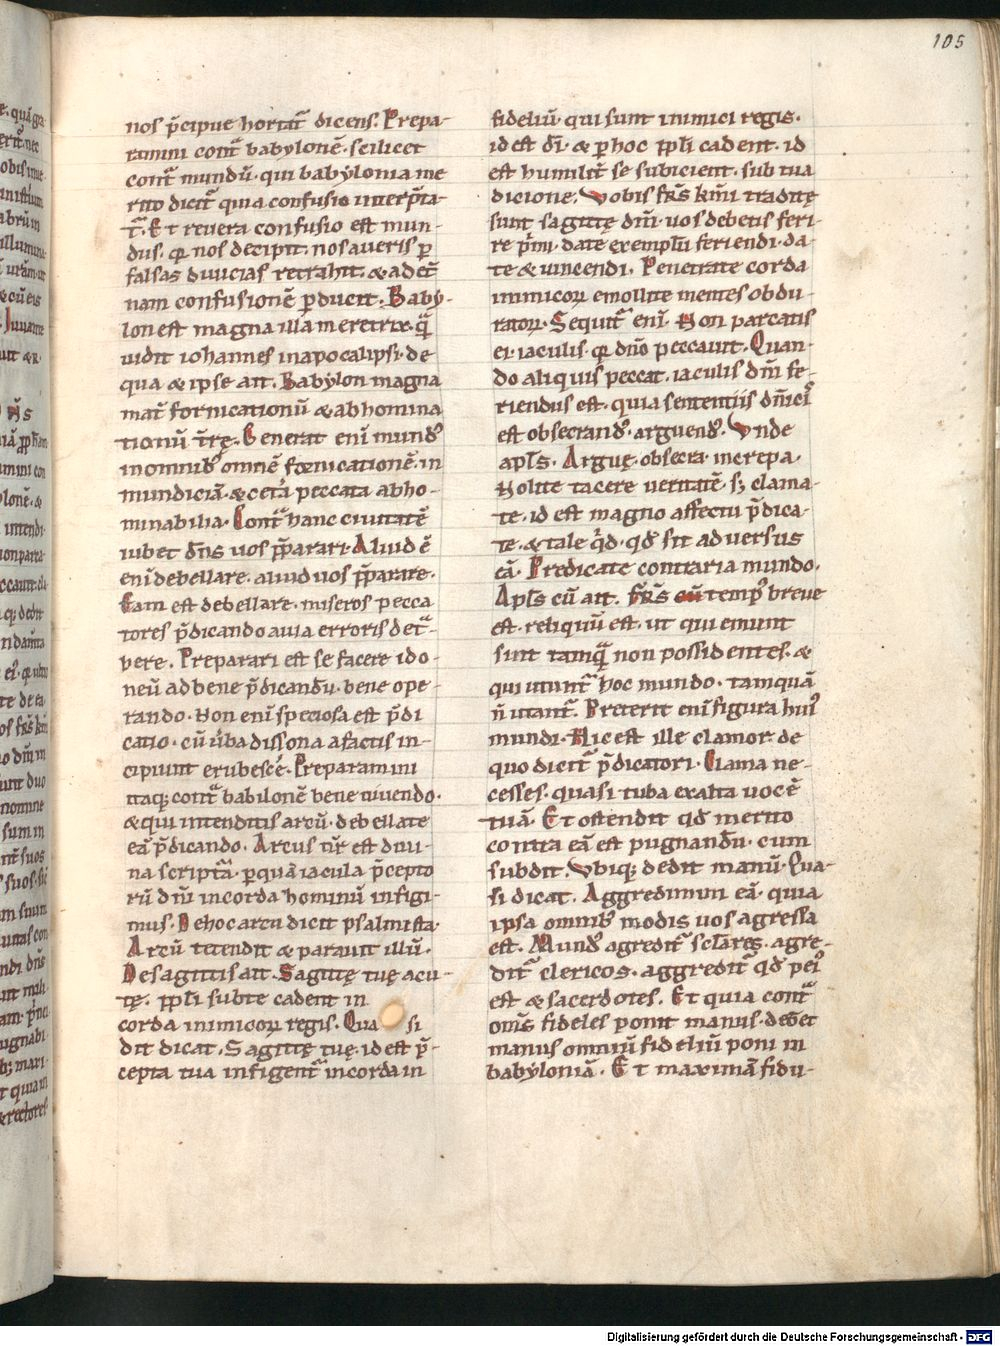 105
nos p̄cipue hortat̄ dicens. Prepa-
ramini cont̄ babylonē. scilicet
cont̄ mundū. qui babylonia me
rito dicit̄ quia confusio interp̄ta-
t̄. Et revera confusio est mun-
dus. qr̄ nos decipit. nos a veris p̱
falsas divicias retrahit. & ad et̄
nam confusionē p̱ducit. Baby-
lon est magna illa meretrix. quā
vidit iohannes in apocalipsi. de
qua & ipse ait. Babylon magna
mat̄ fornicationū & abhomina
tionū t̄rę. Generat eni mundꝰ
in omnibꝰ omnē fornicationē. in
mundiciā. & cet̄a peccata abho-
minabilia. Cont̄ hanc civitatē
iubet dn̄s vos p̄parari. Aliud ē
eni debellare. aliud vos p̄parare.
Eam est debellare. miseros pecca
tores p̄dicando a via erroris det̄-
here. Preparari est se facere ido-
neū ad bene p̄dicandū. bene ope-
rando. Non eni speciosa est p̄di
catio. cū v̄ba dissona a factis in-
cipiunt erubescē. Preparamini
itaq; cont̄ babilonē bene vivendo.
& qui intenditis arcū. debellate
eā p̄dicando. Arcus nr̄ est divi-
na script̄a. p̱ quā iacula p̄cepto
rū dn̄i in corda hominū infigi-
mus. De hoc arcu dicit psalmista.
Arcū tetendit & paravit illū.
De sagittis ait. Sagittę tuę acu-
tę. pp̄li sub te cadent in
corda inimicorꝝ regis. Qua si
dit dicat. Sagittę tuę. id est p̄-
cepta tua infigent̄ in corda in
fideliū. qui sunt inimici regis.
id est dī. & p̱ hoc pp̄li cadent. id
est humilit̄ se subicient. sub tua
dicione. Vobis fr̄s km̄i traditę
sunt sagittę dn̄i. vos debetis feri-
re p̄mi. date exemplū feriendi. da-
te & vincendi. Penetrate corda
inimicorꝝ emollite mentes obdu-
ratorꝝ. Sequit̄ eni. Non parcatis
ei iaculis. qr̄ dn̄o peccavit. Quan-
do aliquis peccat. iaculis dn̄i fe-
riendus est. quia sententiis dn̄icis
est obsecrandꝰ. arguendꝰ. Unde
apl̄s. Arguę. obsecra. increpa.
Nolite tacere veritatē. s; clama-
te. id est magno affectu p̄dica-
te. & tale q̇d. qd̄ sit adversus
eā. Predicate contraria mundo.
Apl̄s cū ait. Fr̄s cū tempꝰ breve
est. reliquū est. ut qui emunt
sint tamquā non possidentes. &
qui utunt̄ hoc mundo. tamquā
n̄ utant̄. Preterit eni figura huiꝰ
mundi. Hic est ille clamor. de
quo dicit̄ p̄dicatori. Clama ne-
cesses. quasi tuba exalta vocē
tuā. Et ostendit qd̄ merito
contra eā est pugnandū. cum
subdit. Ubiq; dedit manū. Qua-
si dicat. Aggredimini eā. quia
ipsa omnibꝰ modis vos agressa
est. Mundꝰ agredit̄ sclares. agre-
dit̄ clericos. aggredit̄ qd̄ peiꝰ
est & sacerdotes. Et quia cont̄
om̄s fideles ponit manus. debet
manus omniū fideliū poni in
babyloniā. Et maximā fidu-
Digitalisierung gefördert durch die Deutsche Forschungsgemeinschaft - DFG